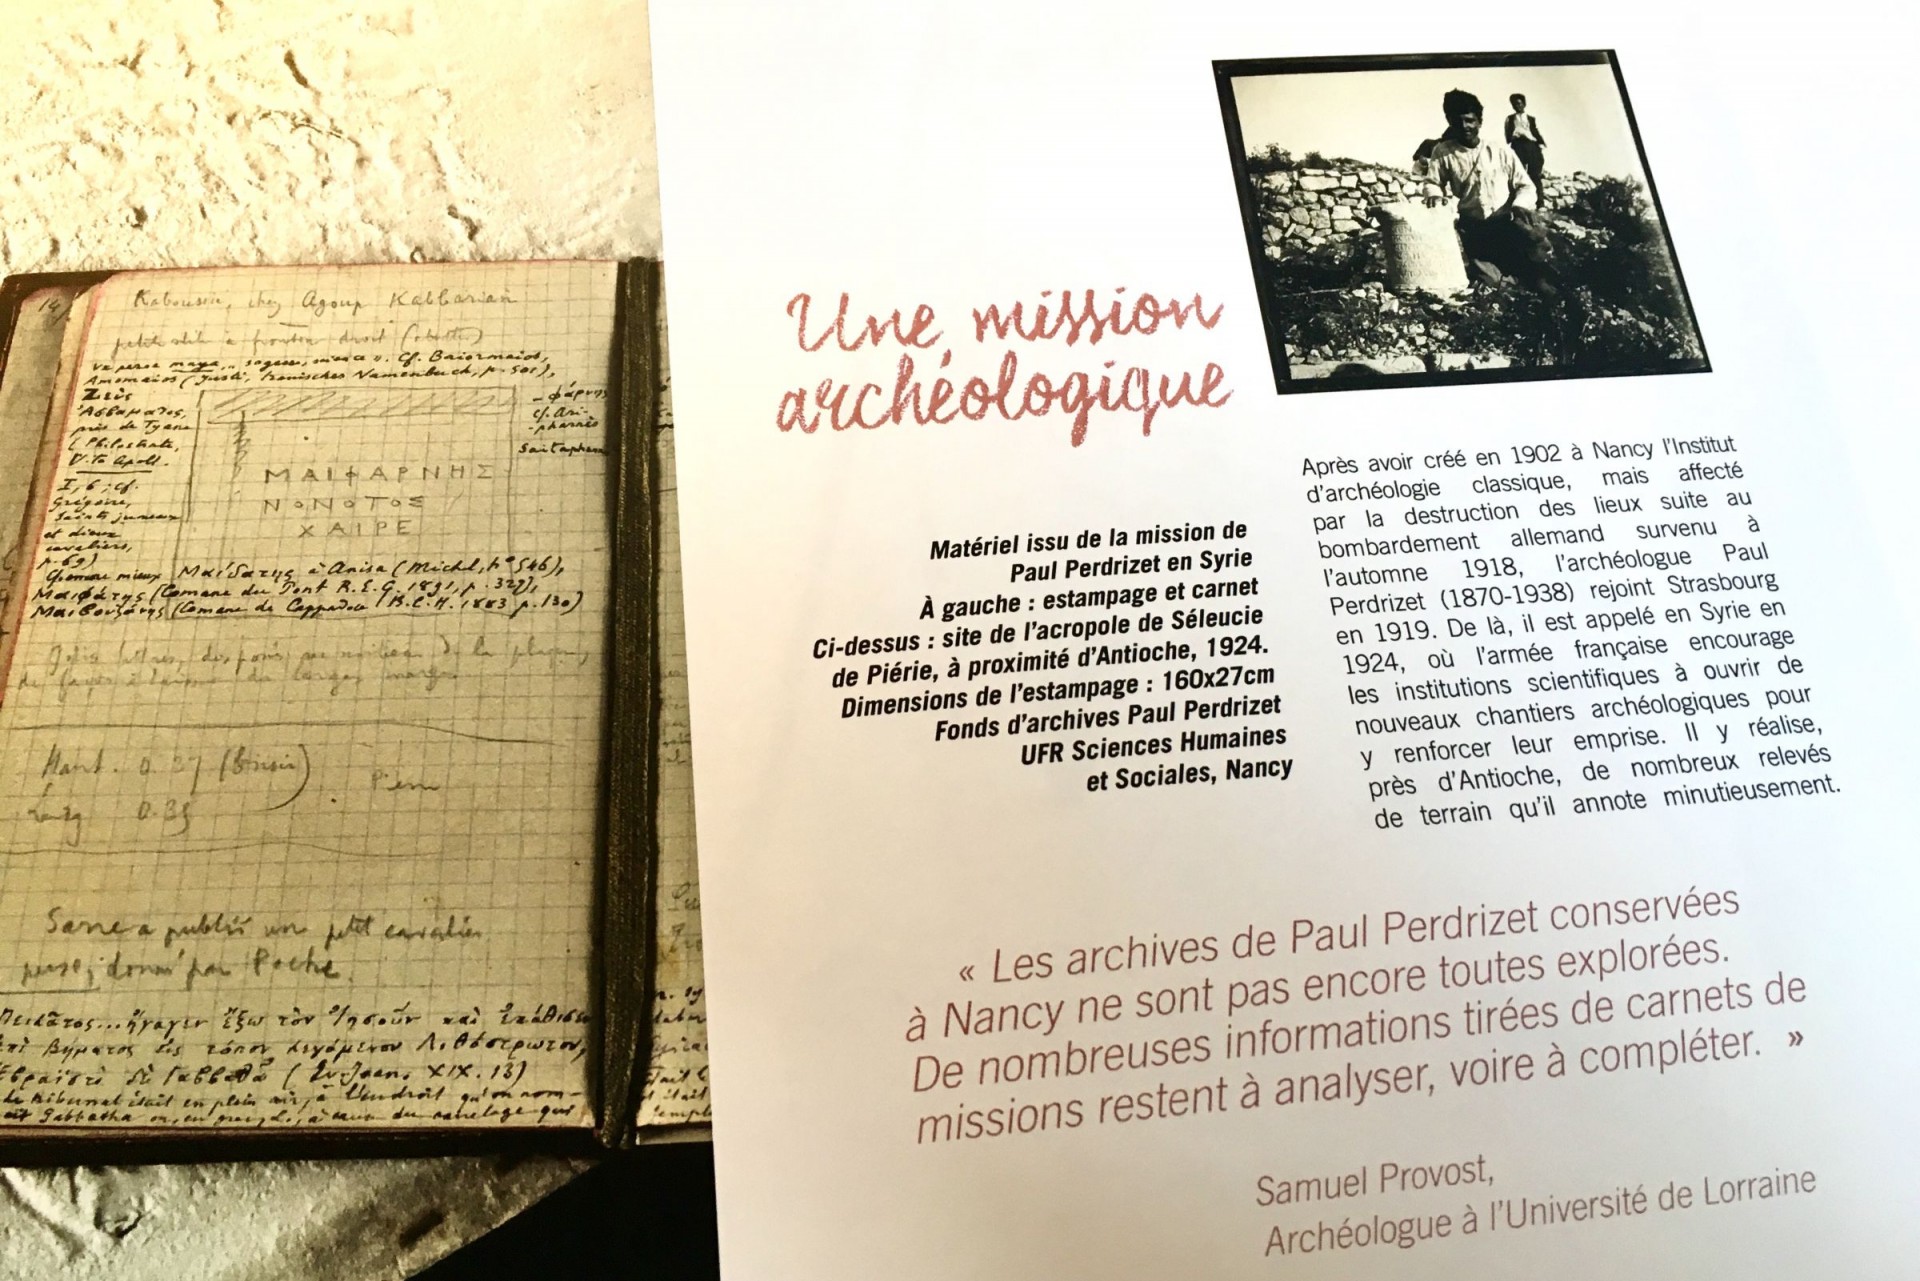 14
Kaboussie, chez Agoup Kabbarian
petite stèle à fronton droit
Amomaios (Justi, Iranisches Namenbuch, p. 501),
Ζεὺς
Ἀσβαμαῖος,
près de Tyane
(Philostrate,
V. Apoll.
I, 6 ; cf.
Grégoire,
Saints jumeaux
et dieux
cavaliers,
p. 69)
cf. Ari-
pharnès
Saitapharn
ΜΑΙΦΑΡΝΗΣ
ΝΟΝΟΤΟΣ
ΧΑΙΡΕ
à Anisa (Michel, n° 546),
(Comane du Pont R.E.G. 1891, p. 327),
(Comane de Cappadoce B.C.H. 1883 p. 130)
Haut. 0.37
0.35
Sarre a publié un petit cavalier
perse, donné par
ἤγαγεν ἔξω τὸν Ἰησοῦν καὶ ἐκάθισεν
ἐπὶ βήματος εἰς τόπον λεγόμενον Λιθόστρωτον,
Ἑβραϊστὶ δὲ Γαββαθᾶ ( Ev. Joan. XIX. 13)
tribunal était en plein air, à l'endroit qu'on nom-
Gabbatha ou, en grec,
Une mission
archéologique
Matériel issu de la mission de
Paul Perdrizet en Syrie
À gauche : estampage et carnet
Ci-dessus : site de l'acropole de Séleucie
de Piérie, à proximité d'Antioche, 1924.
Dimensions de l'estampage : 160x27cm
Fonds d'archives Paul Perdrizet
UFR Sciences Humaines
et Sociales, Nancy
Après avoir créé en 1902 à Nancy l'Institut
d'archéologie classique, mais affecté
par la destruction des lieux suite au
bombardement allemand survenu à
l'automne 1918, l'archéologue Paul
Perdrizet (1870-1938) rejoint Strasbourg
en 1919. De là, il est appelé en Syrie en
1924, où l'armée française encourage
les institutions scientifiques à ouvrir de
nouveaux chantiers archéologiques pour
y renforcer leur emprise. Il y réalise,
près d'Antioche, de nombreux relevés
de terrain qu'il annote minutieusement.
« Les archives de Paul Perdrizet conservées
à Nancy ne sont pas encore toutes explorées.
De nombreuses informations tirées de carnets de
missions restent à analyser, voire à compléter. »
Samuel Provost,
Archéologue à l'Université de Lorraine